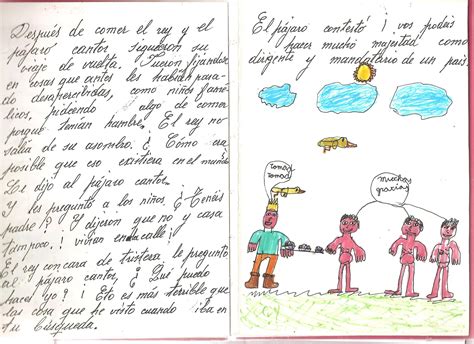 Después de comer el rey y el
pájaro cantor siguieron su
viaje de vuelta. Fueron fijandose
en cosas que antes les habían pasa-
do desapercibidas, como niños famé-
licos, pidiendo algo de comer
porque tenían hambre. El rey no
salía de su asombro. ¿Cómo era
posible que eso existiera en el mundo?
Le dijo al pájaro cantor.
Y les preguntó a los niños. ¿Tenéis
padre? Y dijeron que no y casa
tampoco. ¡ vivían en la calle!
El rey con cara de tristeza le preguntó
al pájaro cantor, ¿Qué puedo
hacer yo? ¡ Esto es más terrible que
las cosa que he visto cuando iba en
tu búsqueda.
El pájaro contestó ¡ vos podéis
hacer mucho majestad como
dirigente y mandatario de un país.
Tomad
Tomad
muchas
gracias